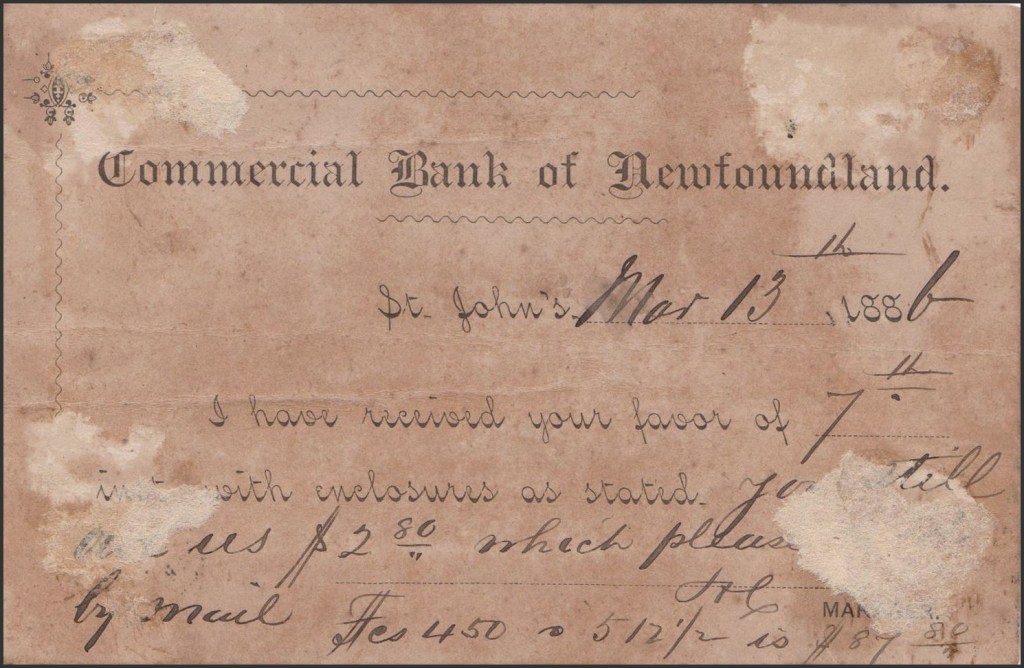 Commercial Bank of Newfoundland.
th
St. John's. Mar 13 , 1886
th
I have received your favor of 7
with enclosures as stated. still
us $2 80 which please
by mail
Fcs 450 @ 5 12 1/2 is $87 80